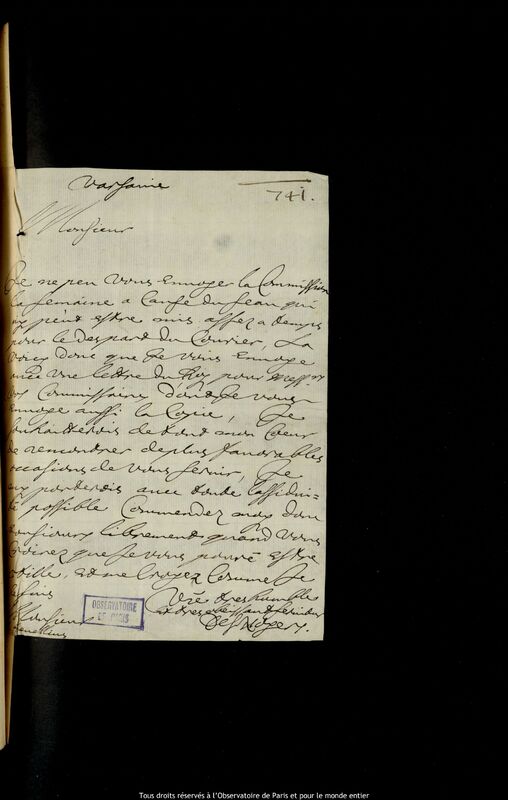 Varsavie
741.
Monsieur
Je ne peu vous envoyer la Commission
la semaine a cause du sceau qui
ny peut estre mis assez a temps
pour le despart du Courier, La
voicy donc que Je vous envoye
avec une lettre du Roy pour Messrs
les Commissaires dont Je vous
envoye aussi la Copie, Je
souhaitterois de tout mon Coeur
de rencontrer de plus favorables
occasions de vous servir, Je
my porterois avec toute l'assidui-
té possible Commendez moy donc
Monsieur librement quand vous
croirez que Je vous pouré estre
utille, et me croyez comme Je
suis
Vre tres humble
et tres obeissant serviteur
Des Noyers.
Monsieur
Hevelius
OBSERVATOIRE
DE PARIS
Tous droits réservés à l'Observatoire de Paris et pour le monde entier